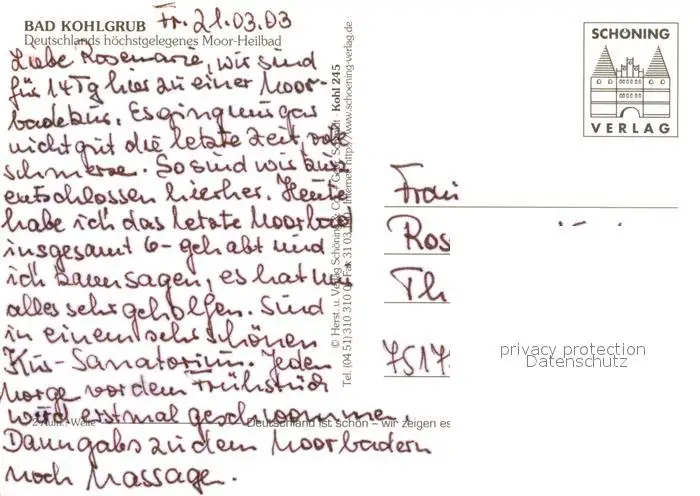 BAD KOHLGRUB Fr. 21.03.03
Deutschlands höchstgelegenes Moor-Heilbad
Liebe Rosemarie, wir sind
für 14 Tg hier zu einer Moor-
badekur. Es ging uns gar
nicht gut die letzte Zeit,
schmerze. So sind wir kurz
entschlossen hierher. Heute
habe ich das letzte Moorbad
insgesamt 6- gehabt und
ich kann sagen, es hat mir
alles sehr geholfen. Sind
in einem sehr schönen
Kur-Sanatorium. Jeden
Morge vor dem Frühstück
wird erstmal geschwommen.
2 Aufl., Welle
Deutschland ist schön – wir zeigen es
Dann gabs zu dem Moorbadern
noch Massagen.
© Herst. u. Verlag Schöning & Co
Kohl 245
Tel. (04 51) 310 310 Fax 31 03 Internet: http://www.schoening-verlag.de
SCHÖNING
VERLAG
Frau
Ros
Th
7517
privacy protection
Datenschutz